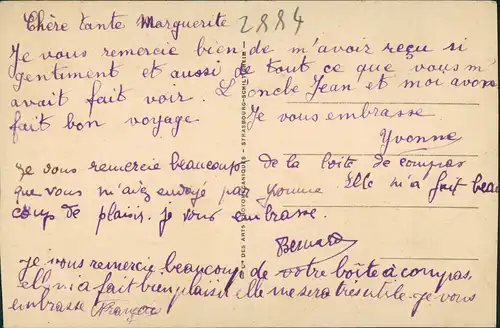 Chère tante Marguerite 2884
Je vous remercie bien de m'avoir reçu si
gentiment et aussi de tout ce que vous m'
avait fait voir. L'oncle Jean et moi avons
fait bon voyage Je vous embrasse
Yvonne
Je vous remercie beaucoup de la boîte de compas
que vous m'aiez envoyé par Yvonne Elle m'a fait beau
coup de plaisir. je vous embrasse.
Bernard
je vous remercie beaucoup de votre boîte à compas,
elle m'a fait bien plaisir elle me sera très utile. je vous
embrasse François
DES ARTS PHOTOMÉCANIQUES - STRASBOURG-SCHILTIGHEIM